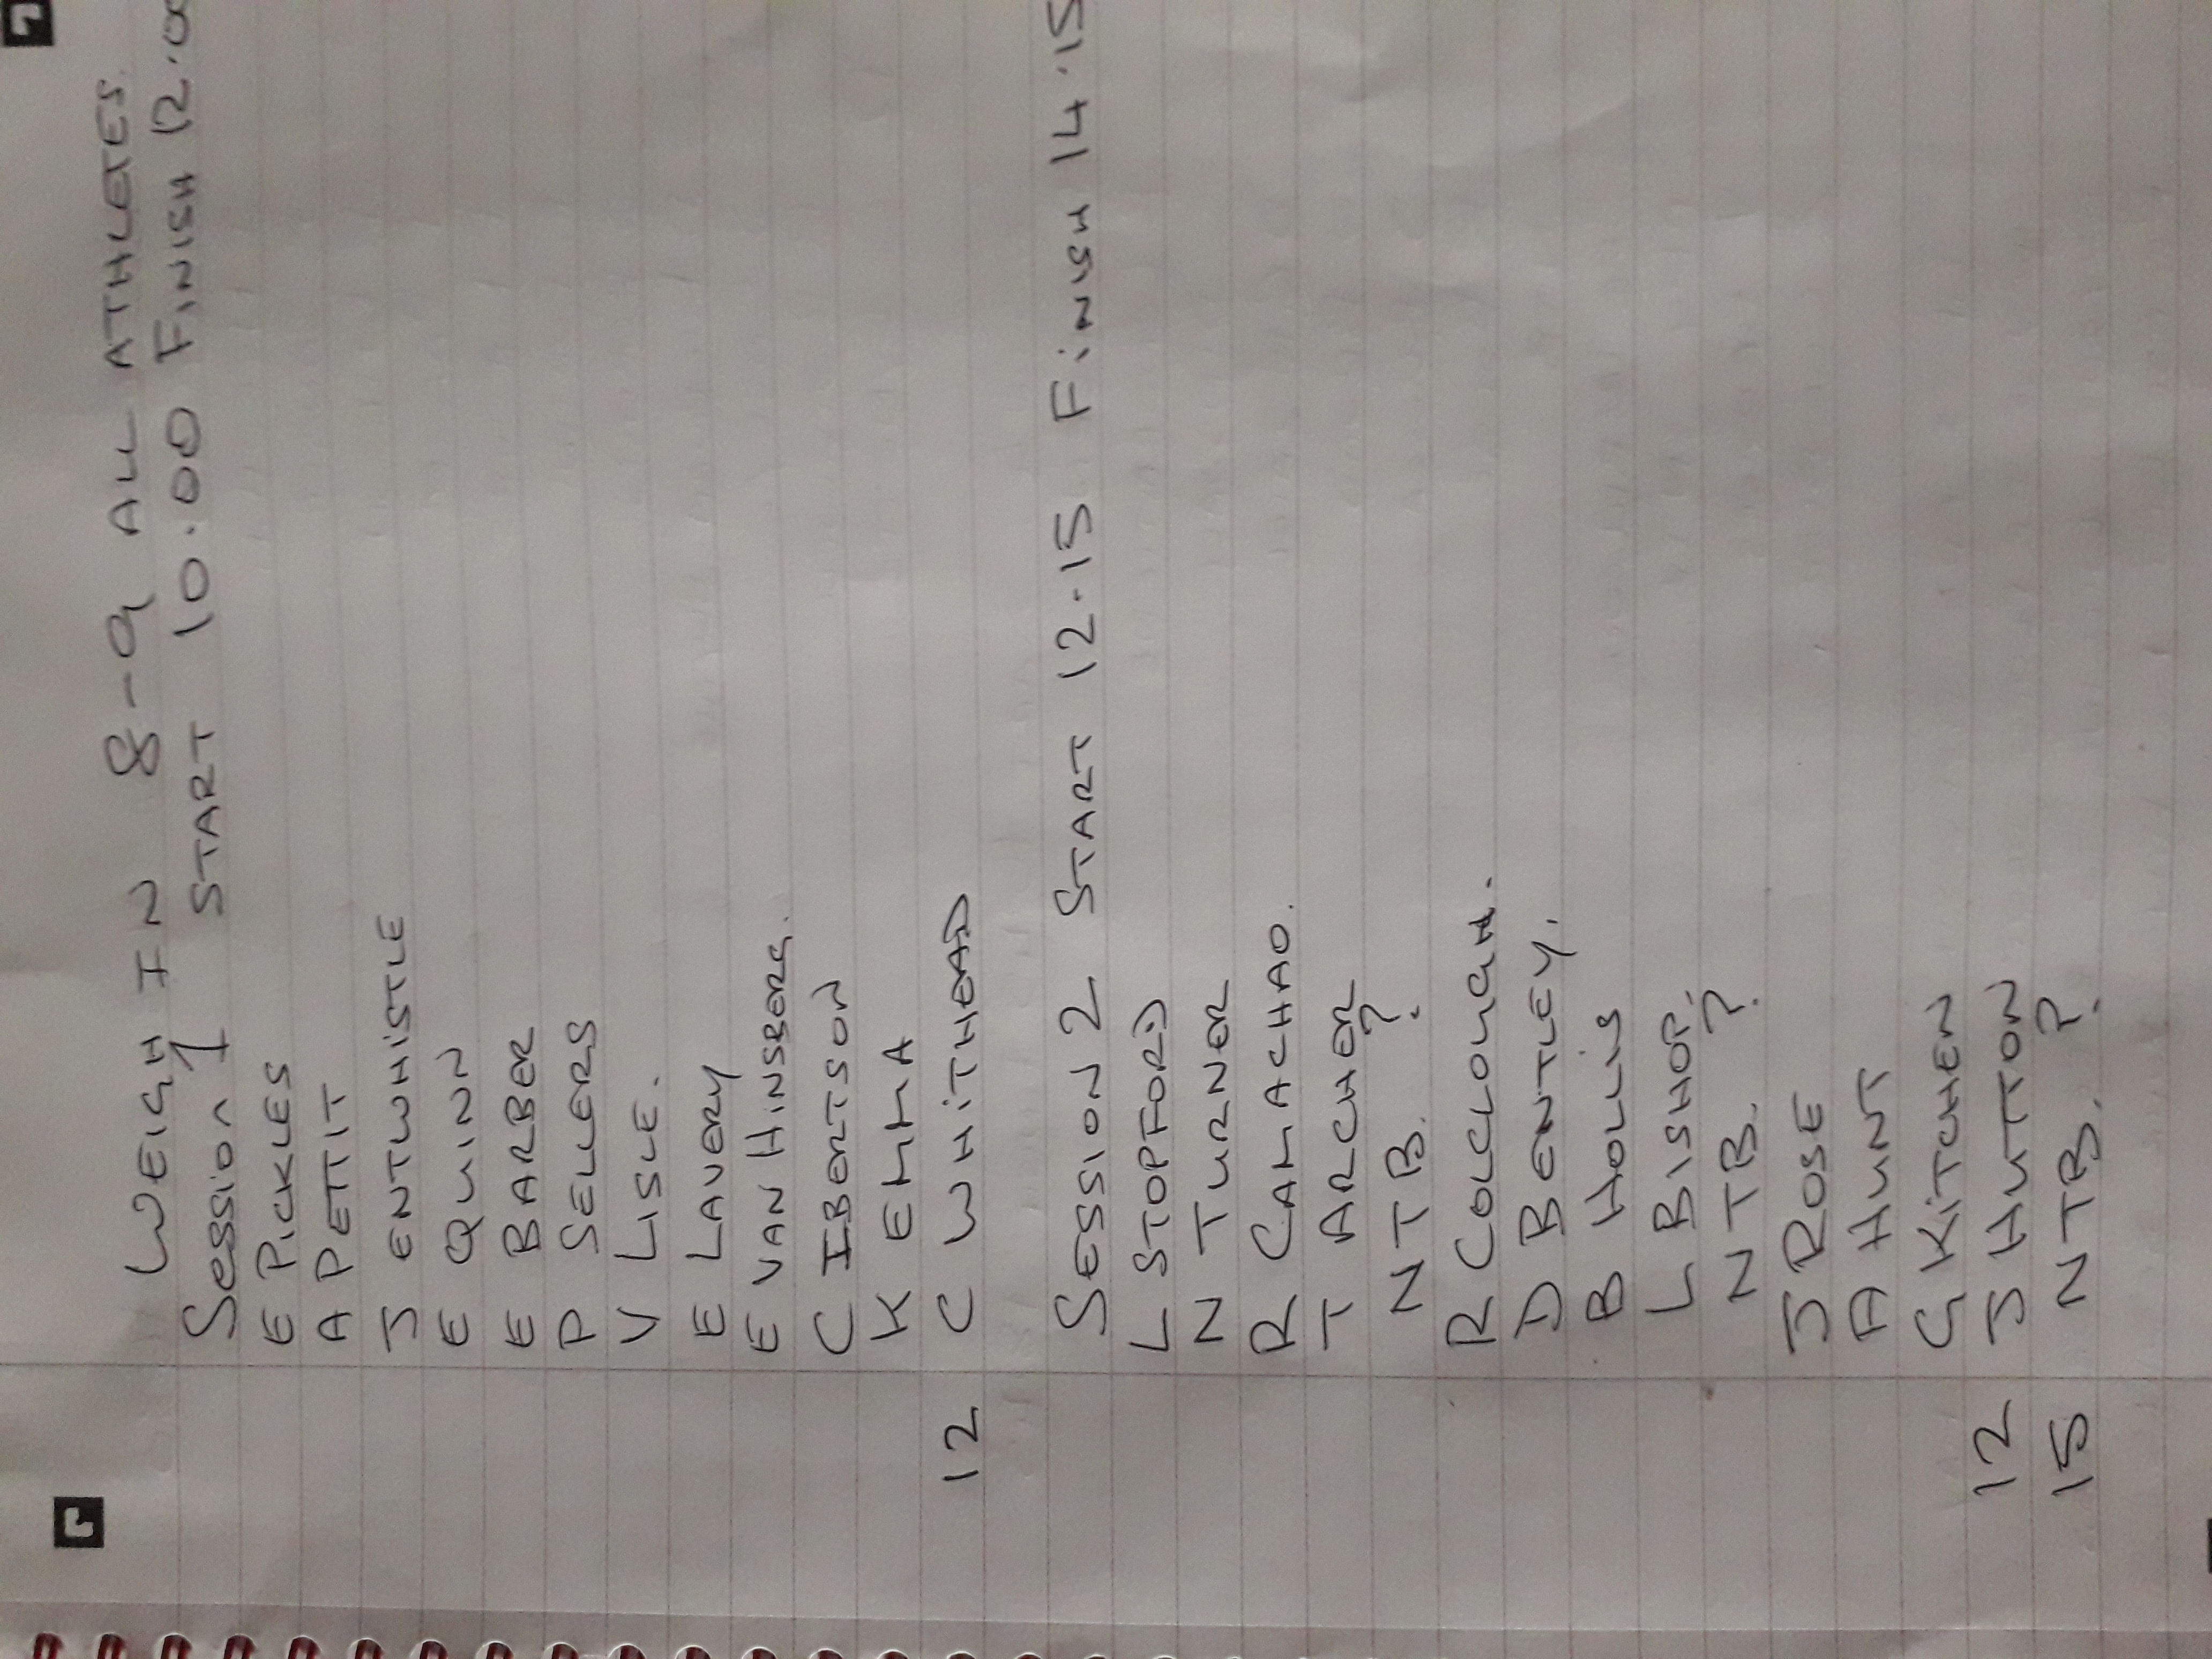 WEIGH IN 8-9 ALL ATHLETES.
Session 1 START 10.00 FINISH 12.00
E PICKLES
A PETTIT
J ENTWHISTLE
E QUINN
E BARBER
P SELLERS
V LISLE.
E LAVERY
E VAN HINSBERG.
C IBERTSON
K EMMA
12 C WHITHEAD
SESSION 2 START 12.15 FINISH 14.15
L STOPFORD
N TURNER
R CAMACHAO.
T ARCHER
N T B. ?
R COLCLOUGH.
D BENTLEY.
B HOLLIS
L BISHOP.
N T B. ?
J ROSE
A HUNT
G KITCHEN
12 J HUTTON
15 N T B. ?